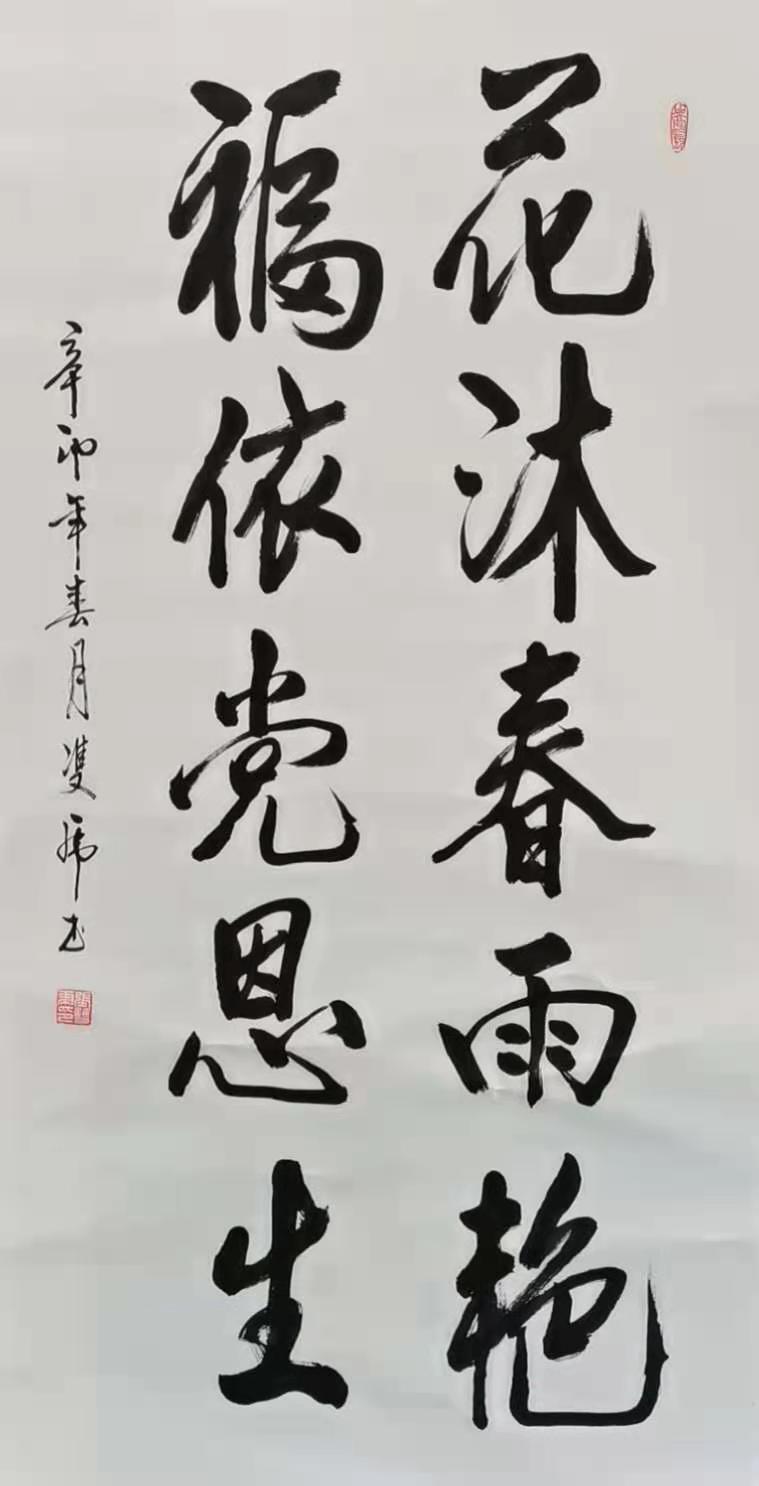 花沐春雨艳
福依党恩生
辛卯年春月双虎书